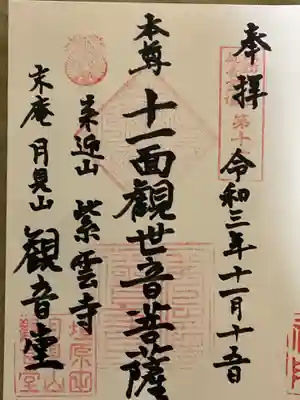 奉拝
令和三年十一月十五日
本尊
十一面観世音菩薩
紫雲寺
末庵 月見山
観音堂
第十